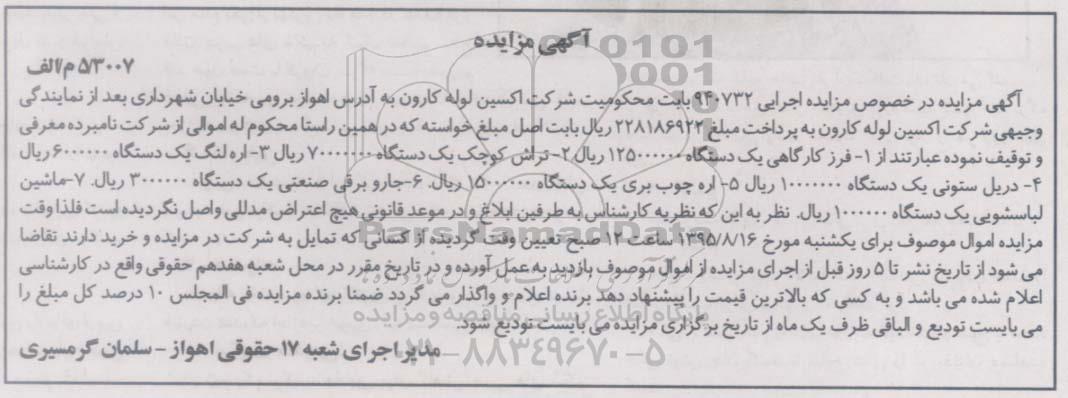 آگهی مزایده
۵/۳۰۰۷ م/الف
آگهی مزایده در خصوص مزایده اجرایی ۹۴۰۷۳۲ بابت محکومیت شرکت اکسین لوله کارون به آدرس اهواز برومی خیابان شهرداری بعد از نمایندگی
وجیهی شرکت اکسین لوله کارون به پرداخت مبلغ ۲۲۸۱۸۶۹۲۲ ریال بابت اصل مبلغ خواسته که در همین راستا محکوم له اموالی از شرکت نامبرده معرفی
و توقیف نموده عبارتند از ۱- فرز کارگاهی یک دستگاه ۱۲۵۰۰۰۰۰۰ ریال ۲- تراش کوچک یک دستگاه ۷۰۰۰۰۰۰۰ ریال ۳- اره لنگ یک دستگاه ۶۰۰۰۰۰۰ ریال
۴- دریل ستونی یک دستگاه ۱۰۰۰۰۰۰۰ ریال ۵- اره چوب بری یک دستگاه ۱۵۰۰۰۰۰۰ ریال. ۶-جارو برقی صنعتی یک دستگاه ۳۰۰۰۰۰۰ ریال. ۷-ماشین
لباسشویی یک دستگاه ۱۰۰۰۰۰۰ ریال. نظر به این که نظریه کارشناس به طرفین ابلاغ و در موعد قانونی هیچ اعتراض مدللی واصل نگردیده است فلذا وقت
مزایده اموال موصوف برای یکشنبه مورخ ۱۳۹۵/۸/۱۶ ساعت ۱۲ صبح تعیین وقت گردیده از کسانی که تمایل به شرکت در مزایده و خرید دارند تقاضا
می شود از تاریخ نشر تا ۵ روز قبل از اجرای مزایده از اموال موصوف بازدید به عمل آورده و در تاریخ مقرر در محل شعبه هفدهم حقوقی واقع در کارشناسی
اعلام شده می باشد و به کسی که بالاترین قیمت را پیشنهاد دهد برنده اعلام و واگذار می گردد ضمنا برنده مزایده فی المجلس ۱۰ درصد کل مبلغ را
می بایست تودیع و الباقی ظرف یک ماه از تاریخ برگزاری مزایده می بایست تودیع شود.
مدیر اجرای شعبه ۱۷ حقوقی اهواز - سلمان گرمسیری
ParsNamadData
پایگاه اطلاع رسانی مناقصه و مزایده
۰۲۱-۸۸۳۴۹۶۷۰-۵